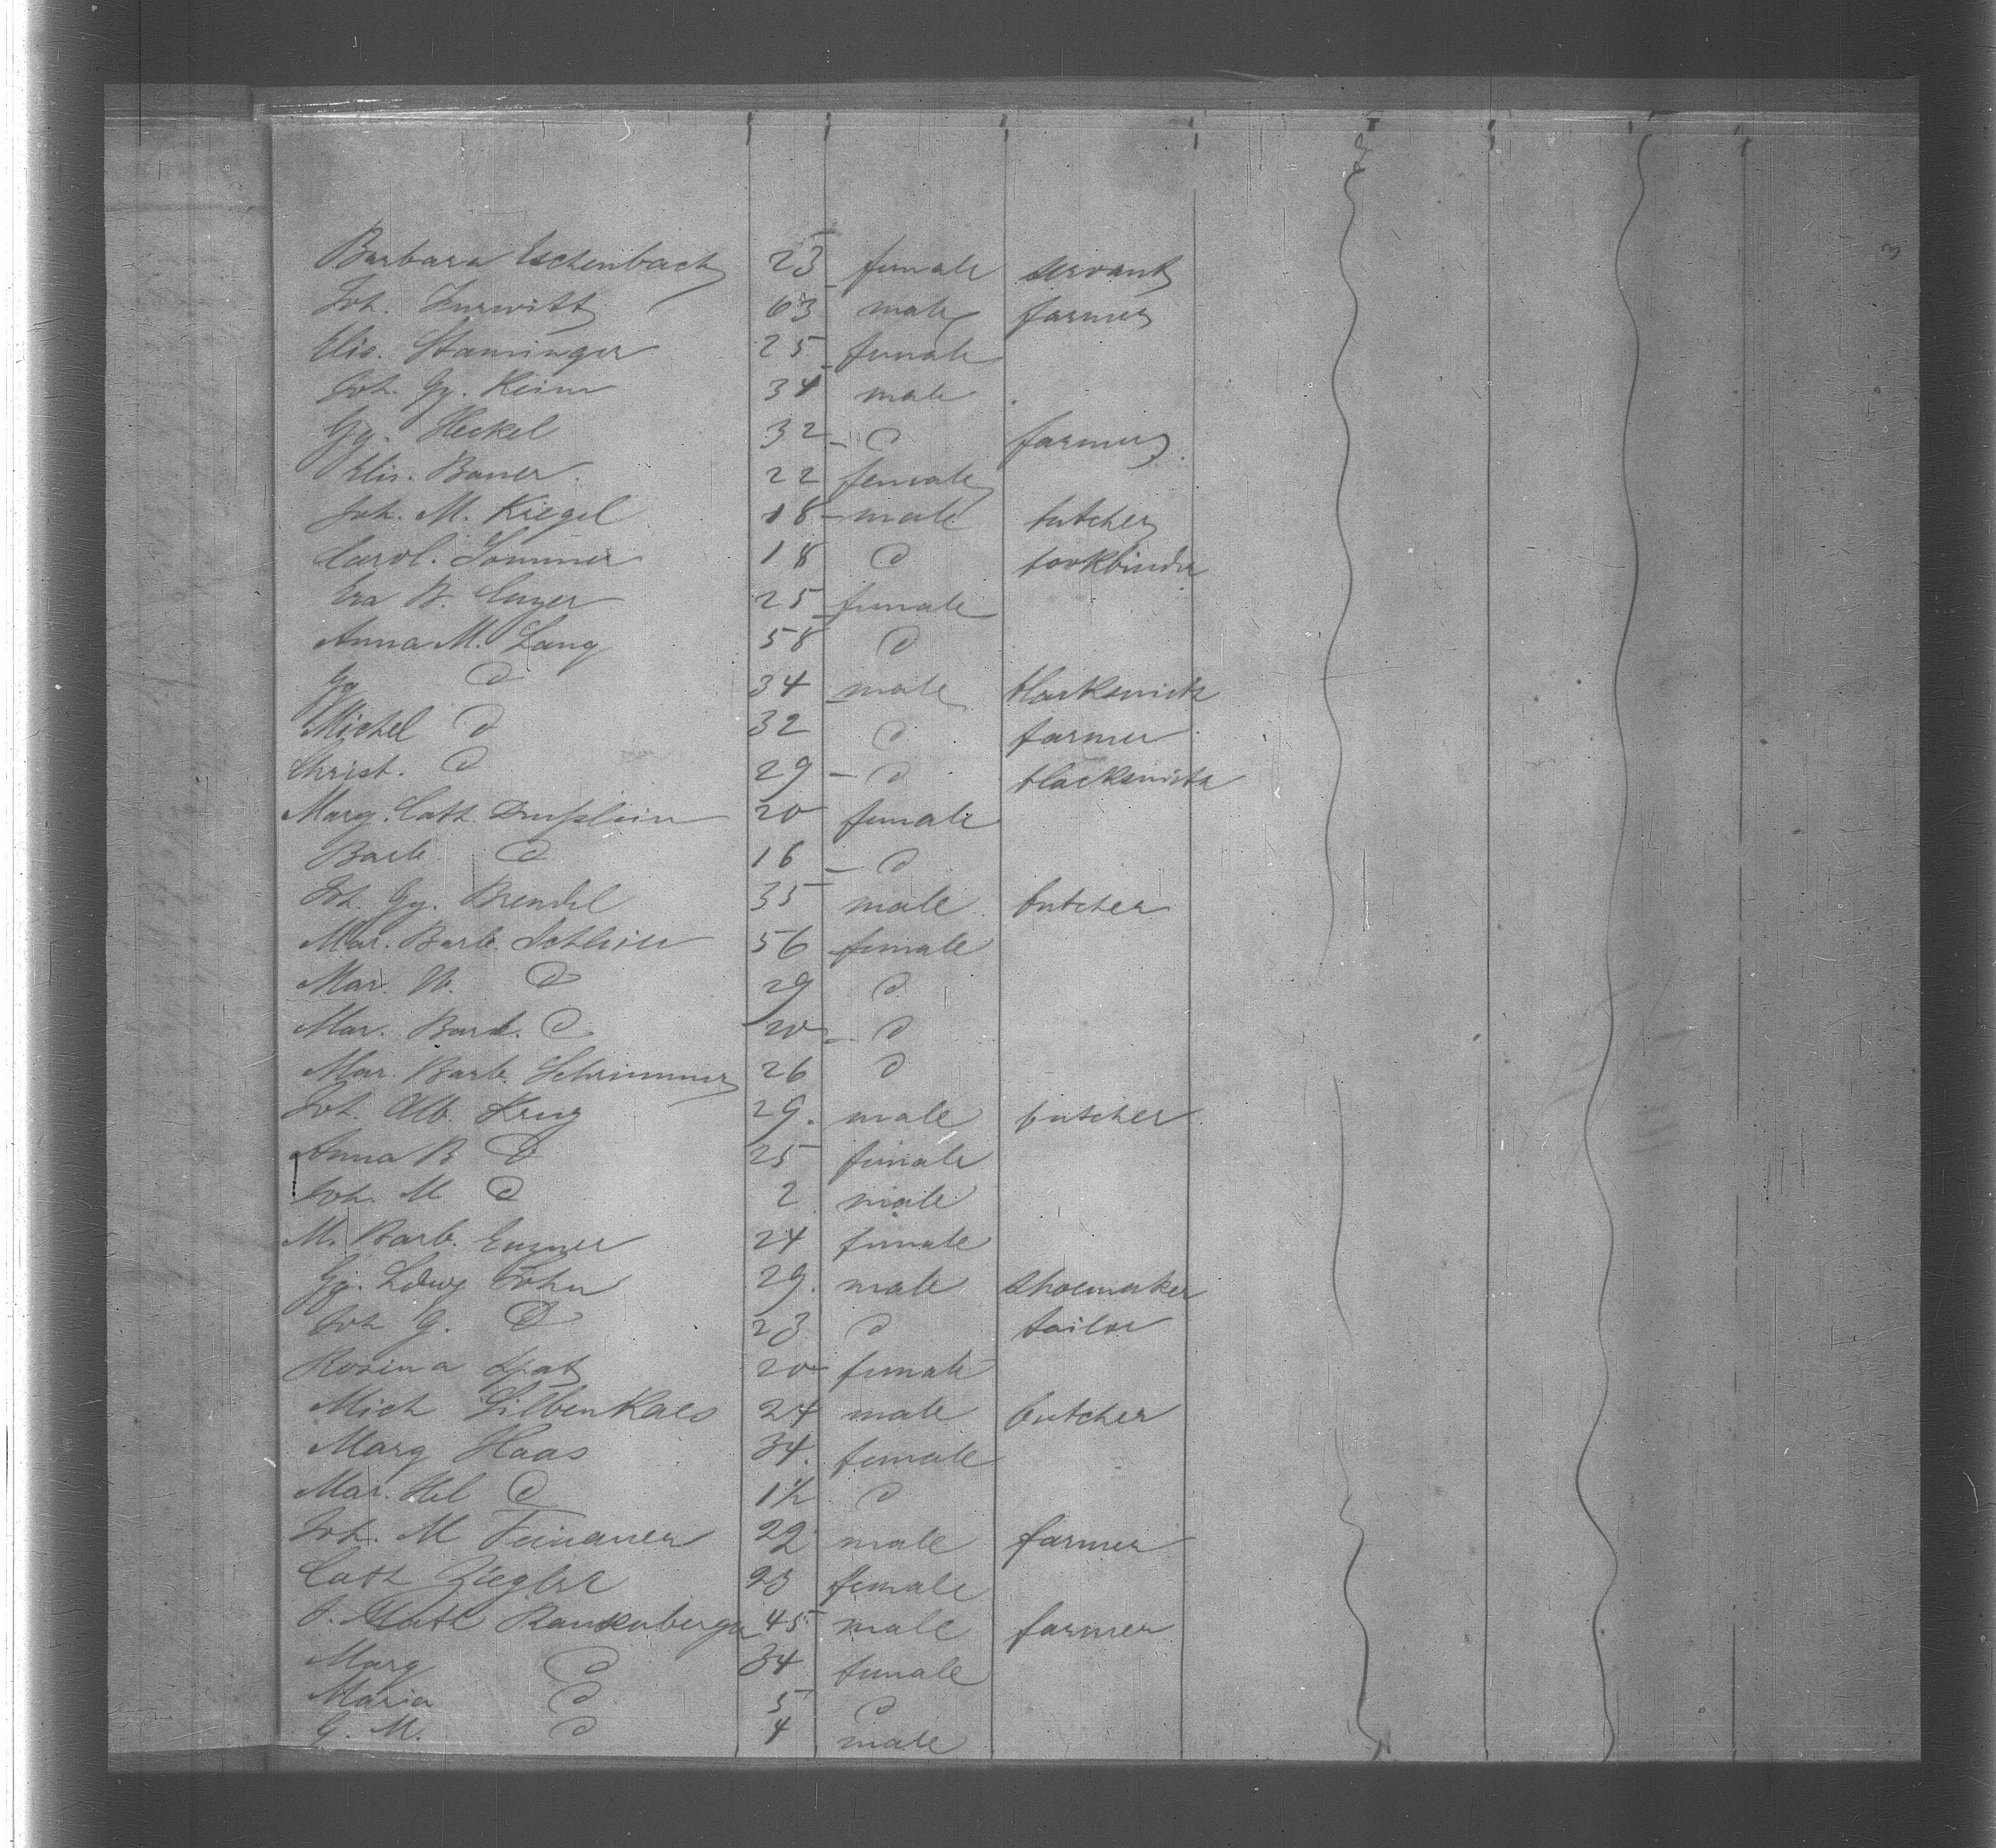 Barbara Eschenbach 23 female servant
Joh. Zurwitt 63 male farmer
Elis. Staminger 25 female
Joh. Gg. Keim 34 male
Gg. Heckel 32 - d farmer
Elis. Bauer 22 female
Joh. M. Kiegel 18 - male butcher
Carol. Sommer 18 d bookbinder
Eva B. 25 female
Anna M. Lang 58 d
Gg d 34 male blacksmith
Michel d 32 d farmer
Christ. d 29 - d blacksmith
Marg. Cath. 20 female
Barb d 16 - d
Joh. Gg. Brendel 35 male butcher
Mar. Barb. 56 female
Mar. d 29 d
Mar. Barb. d 20 - d
Mar. Barb. Schrimmer 26 d
Joh. Alb. Krug 29. male butcher
Anna B d 25 female
Joh. M. d 2 male
M. Barb. Euzner 24 female
Gg. Ldwg John 29. male shoemaker
Joh G. d 23 d tailor
Rosina Spat 20 female
Mich Silbenkaes 24 male butcher
Marg Haas 34. female
Mar. Hel d 1½ d
Joh. M 22 male farmer
Cath Ziegler 23 female
J. Rankenberger 45 male farmer
Marg d 34 female
Maria d 5 d
G. M. d 4 male